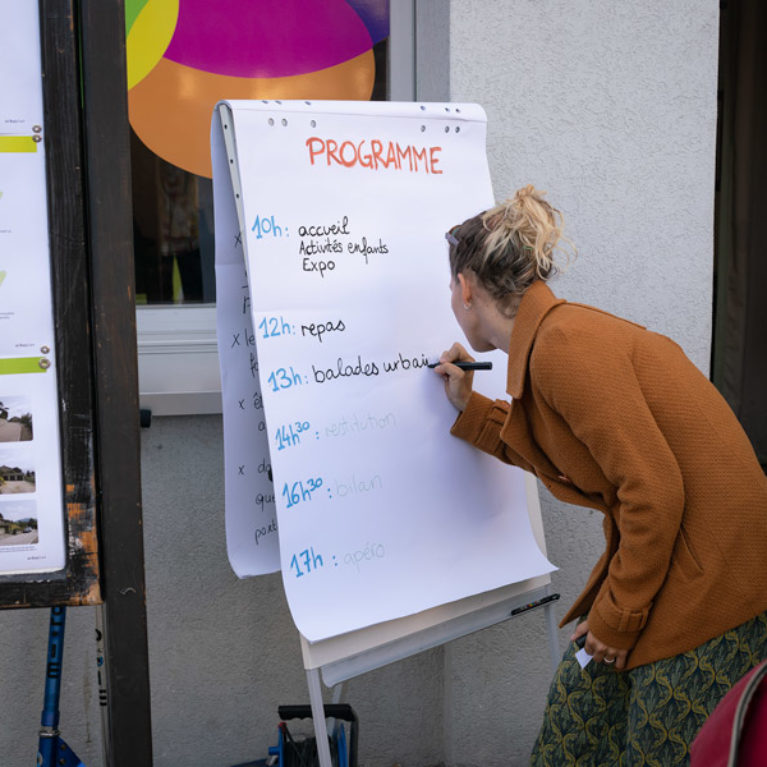 PROGRAMME
10h: accueil
Activités enfants
Expo
12h: repas
13h: balades urbain
14h30 : restitution
16h30 : bilan
17h : apéro
x
x le
x
x
que